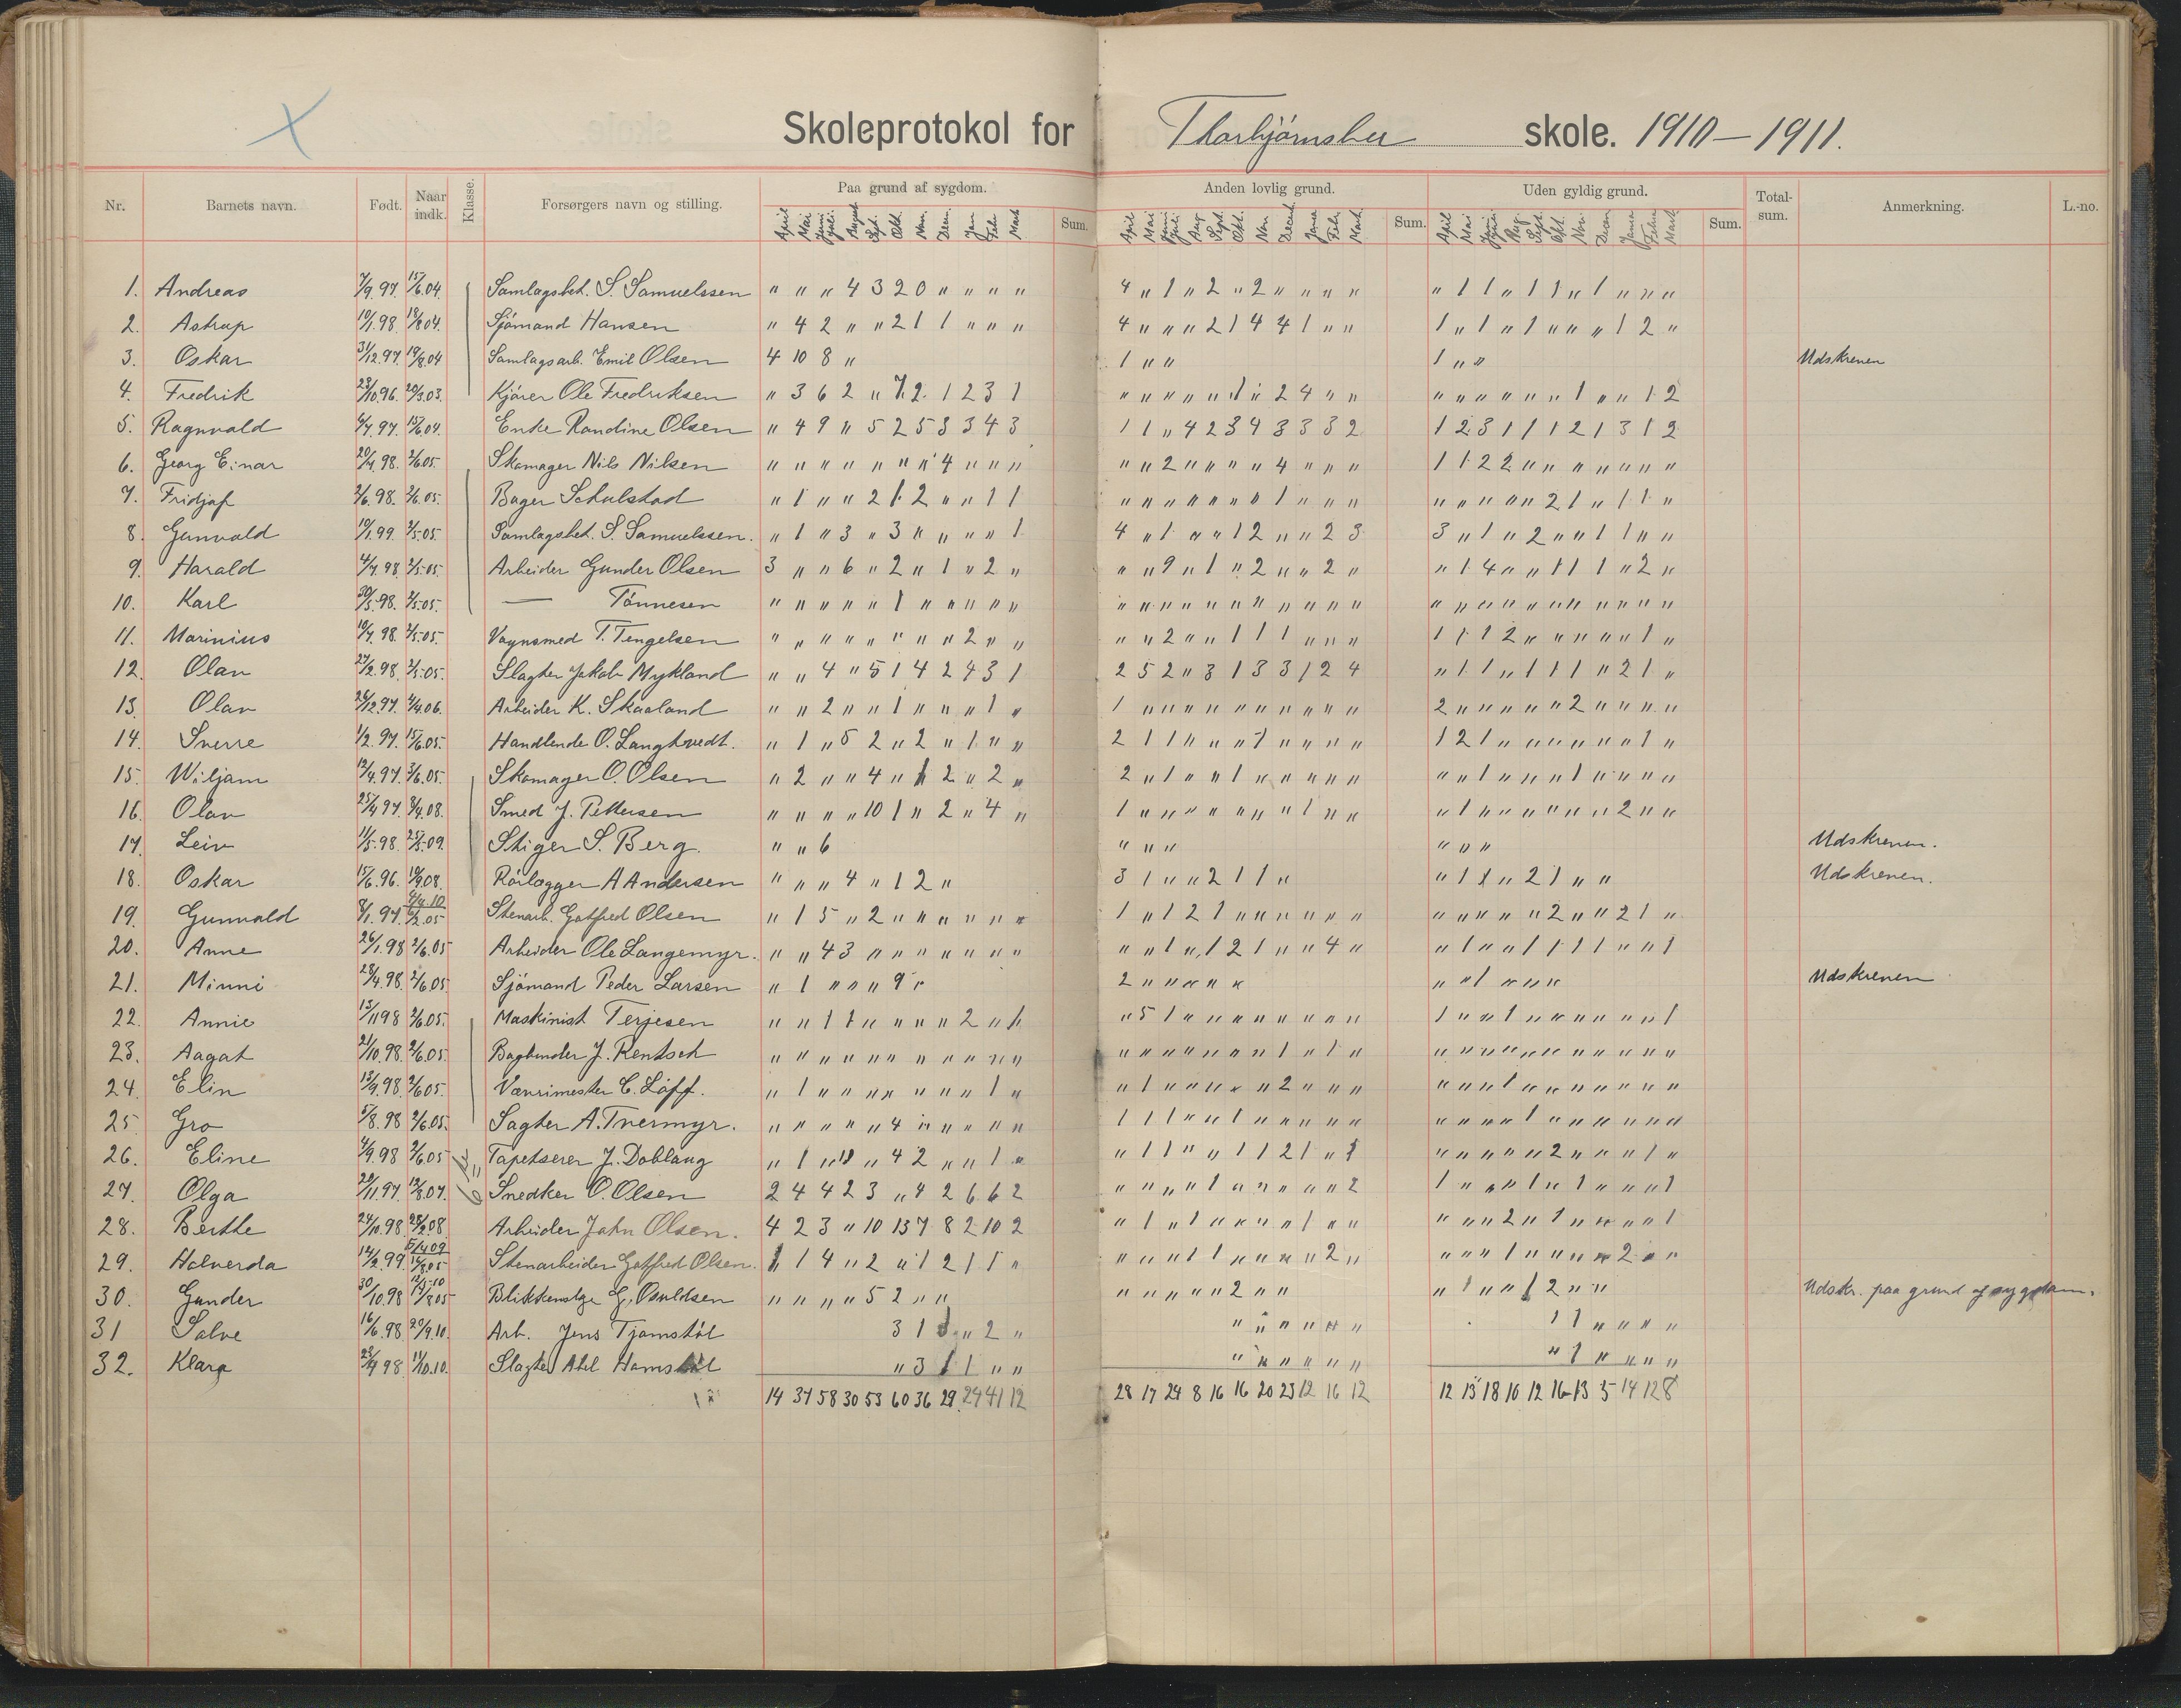 Skoleprotokol for Thorbjørnsbu skole. 1910-1911.
Nr. Barnets navn. Født. Naar indk. Klasse. Forsørgers navn og stilling. Paa grund af sygdom. Sum. Anden lovlig grund. Sum. Uden gyldig grund. Sum. Total-sum. Anmerkning. L.-no.
April Mai Juni Juli August Sept. Okt. Nov. Decm. Jan Febr Mars
April Mai Juni Juli Aug Sept. Okt. Nov Decemb. Janua Febr. Mars
April Mai Juni Juli Aug. Sept. Okt. Nov. Decem Janua Febru Mars
1. Andreas 7/9.97. 15/6.04. Samlagsbet. S. Samuelssen " " " 4 3 2 0 " " " " 4 " 1 " 2 " 2 " " " " " 1 1 " 1 1 " 1 " " "
2. Astrup 10/1.98. 18/8.04. Sjømand Hansen " 4 2 " " 2 1 1 " " " 4 " " " 2 1 4 4 1 " " 1 " 1 " 1 " " " 1 2 "
3. Oskar 31/12.97. 19/8.04 Samlagsarb. Emil Olsen 4 10 8 " 1 " " 1 " " Udskreven
4. Fredrik 23/10.96. 20/3.03. Kjører Ole Fredriksen " 3 6 2 " 7 2 1 2 3 1 " " " " " 1 " 2 4 " " " " " " " " 1 " " 1 2
5. Ragnvald 6/7.97. 15/6.04. Enke Randine Olsen " 4 9 " 5 2 5 3 3 4 3 1 1 " 4 2 3 4 3 3 3 2 1 2 3 1 1 1 2 1 3 1 2
6. Georg Einar 20/4.98. 2/6.05. Skomager Nils Nilsen " " " " " " " 4 " " " " " 2 " " " " 4 " " " 1 1 2 2 " " " " " " "
7. Fridjof 2/6.98. 2/6.05. Bager Schulstad " 1 " " 2 1 2 " " 1 1 " " " " " " " 1 " " " " " " " " 2 1 " 1 1 "
8. Gunvald 10/1.99. 2/5.05. Samlagsbet. S. Samuelssen. " 1 " 3 " 3 " " " " 1 4 " 1 " " 1 2 " " 2 3 3 " 1 " 2 " " 1 1 " "
9. Harald 4/4.98 2/5.05. Arbeider Gunder Olsen 3 " " 6 " 2 " 1 " 2 " " " 9 " 1 " 2 " " 2 " " 1 4 " " 1 1 1 " 2 "
10. Karl 30/5.98. 2/5.05. — Tønnesen " " " " " 1 " " " " " " " " " " " " " " " " " " " " " " " " " " "
11. Marinius 10/4.98. 2/5.05. Vognsmed T. Tengelsen " " " " " " " " 2 " " " " 2 " " 1 1 1 " " " 1 1 1 2 " " " " " 1 "
12. Olav 27/2.98. 2/5.05. Slagter Jakob Mykland " " 4 " 5 1 4 2 4 3 1 2 5 2 " 3 1 3 3 1 2 4 " 1 1 " 1 1 1 " 2 1 "
13. Olav 26/12.97. 4/4.06. Arbeider K. Skaaland " " 2 " " 1 " " " 1 " 1 " " " " " " " " " " 2 " " " " " 2 " " " "
14. Sverre 1/2.97. 15/6.05. Handlende O. Langkvedt. " 1 " 5 2 " 2 " 1 " " 2 1 1 " " " 1 " " " " 1 2 1 " " " " " " 1 "
15. Wiljam 12/4.97. 3/6.05. Skomager O. Olsen " 2 " " 4 " 1 2 " 2 " 2 " 1 " " 1 " " " " " " " 1 " " " 1 " " " "
16. Olav 25/4 97. 8/4.08. Smed J. Pettersen " " " " 10 1 " 2 " 4 " 1 " " " " " " " 1 " " " 1 " " " " " " 2 " "
17. Leiv 11/5.98. 25/5.09. Stiger S. Berg. " " 6 " " " " " " Udskreven.
18. Oskar 15/6.96. 19/9.08. Rørlægger A Andersen " " " 4 " 1 2 " 3 1 " " 2 1 1 " " 1 1 " 2 1 " " Udskreven.
19. Gunnvald 8/1.97. Stenarb. Gotfred Olsen " 1 5 " 2 " " " " " " 1 " 1 2 1 " " " " " " " " " " " 2 " " 2 1 "
20. Anne 26/1.98 2/6.05 Arbeider Ole Langemyr. " " 4 3 " " " " " " " " " 1 " 1 2 1 " " 4 " " 1 " " 1 1 1 1 " " 1
21. Minni 28/4.98. 2/6.05. Sjømand Peder Larsen " 1 " " " 9 " 2 " " " " " " " 1 " " " Udskreven
22. Annie 13/11 98 2/6.05. Maskinist Terjesen " " 1 1 " " " " 2 " 1 " 5 1 " " " " " " " " 1 " " 1 " " " " " " 1
23. Aagot 21/10.98. 2/6.05. Bogbinder J. Rentsch " " " " " " " " " " " " " " " " " " 1 " 1 " " " " " " " " " " " "
24. Elin 13/9.98. 2/6.05. Værvimester C. Löff. " 1 " " " " " " " 1 " " 1 " " " " " 2 " " " " " " 1 " " " " " " "
25. Gro 5/8.98 2/6.05. Sagter A. Tvermyr. " " " " " 4 " " " " " 1 1 1 " " 1 " " " " " " " " " 1 " " " " " "
26. Eline 4/9.98 2/6.05 Tapetserer J. Doblaug " 1 " 18 " 4 2 " " 1 " " 1 1 " " 1 1 2 1 " 1 " " " " " 2 " " " 1 "
27. Olga 20/11.97. 12/8.07. Snedker O. Olsen 2 4 4 2 3 " 4 2 6 6 2 " " " " 1 " " " " " 2 1 " " " 1 " 1 " " " 1
28. Berthe 24/10.98. 28/2.08. Arbeider John Olsen. 4 2 3 " 10 13 7 8 2 10 2 " 1 " 1 " " " " 1 " " " " " 2 " 1 " " " " 1
29. Halverda 14/2.99. Stenarbeider Gotfred Olsen. 1 1 4 " 2 " 1 2 1 1 " " " " 1 1 " " " " 2 " " " " 1 " " " " 2 " "
30. Gunder 30/10.98 Blikkenslager G. Osuldsen " " " " 5 2 " " " " " " " 2 " " " 1 " " 1 2 " " Udskr. paa grund af sygdom.
31 Salve 16/6.98. 20/9.10. Arb. Jens Tjamstøl 3 1 3 " 2 " " " " " " " 1 1 " " " "
32. Klara 28/4 98 11/10.10. Slagter Abel Hamstøl " 3 1 1 " " " " " " " " " 1 " " " "
14 37 58 30 53 60 36 29 24 41 12 28 17 24 8 16 16 20 23 12 16 12 12 13 18 10 12 16 13 5 14 12 8